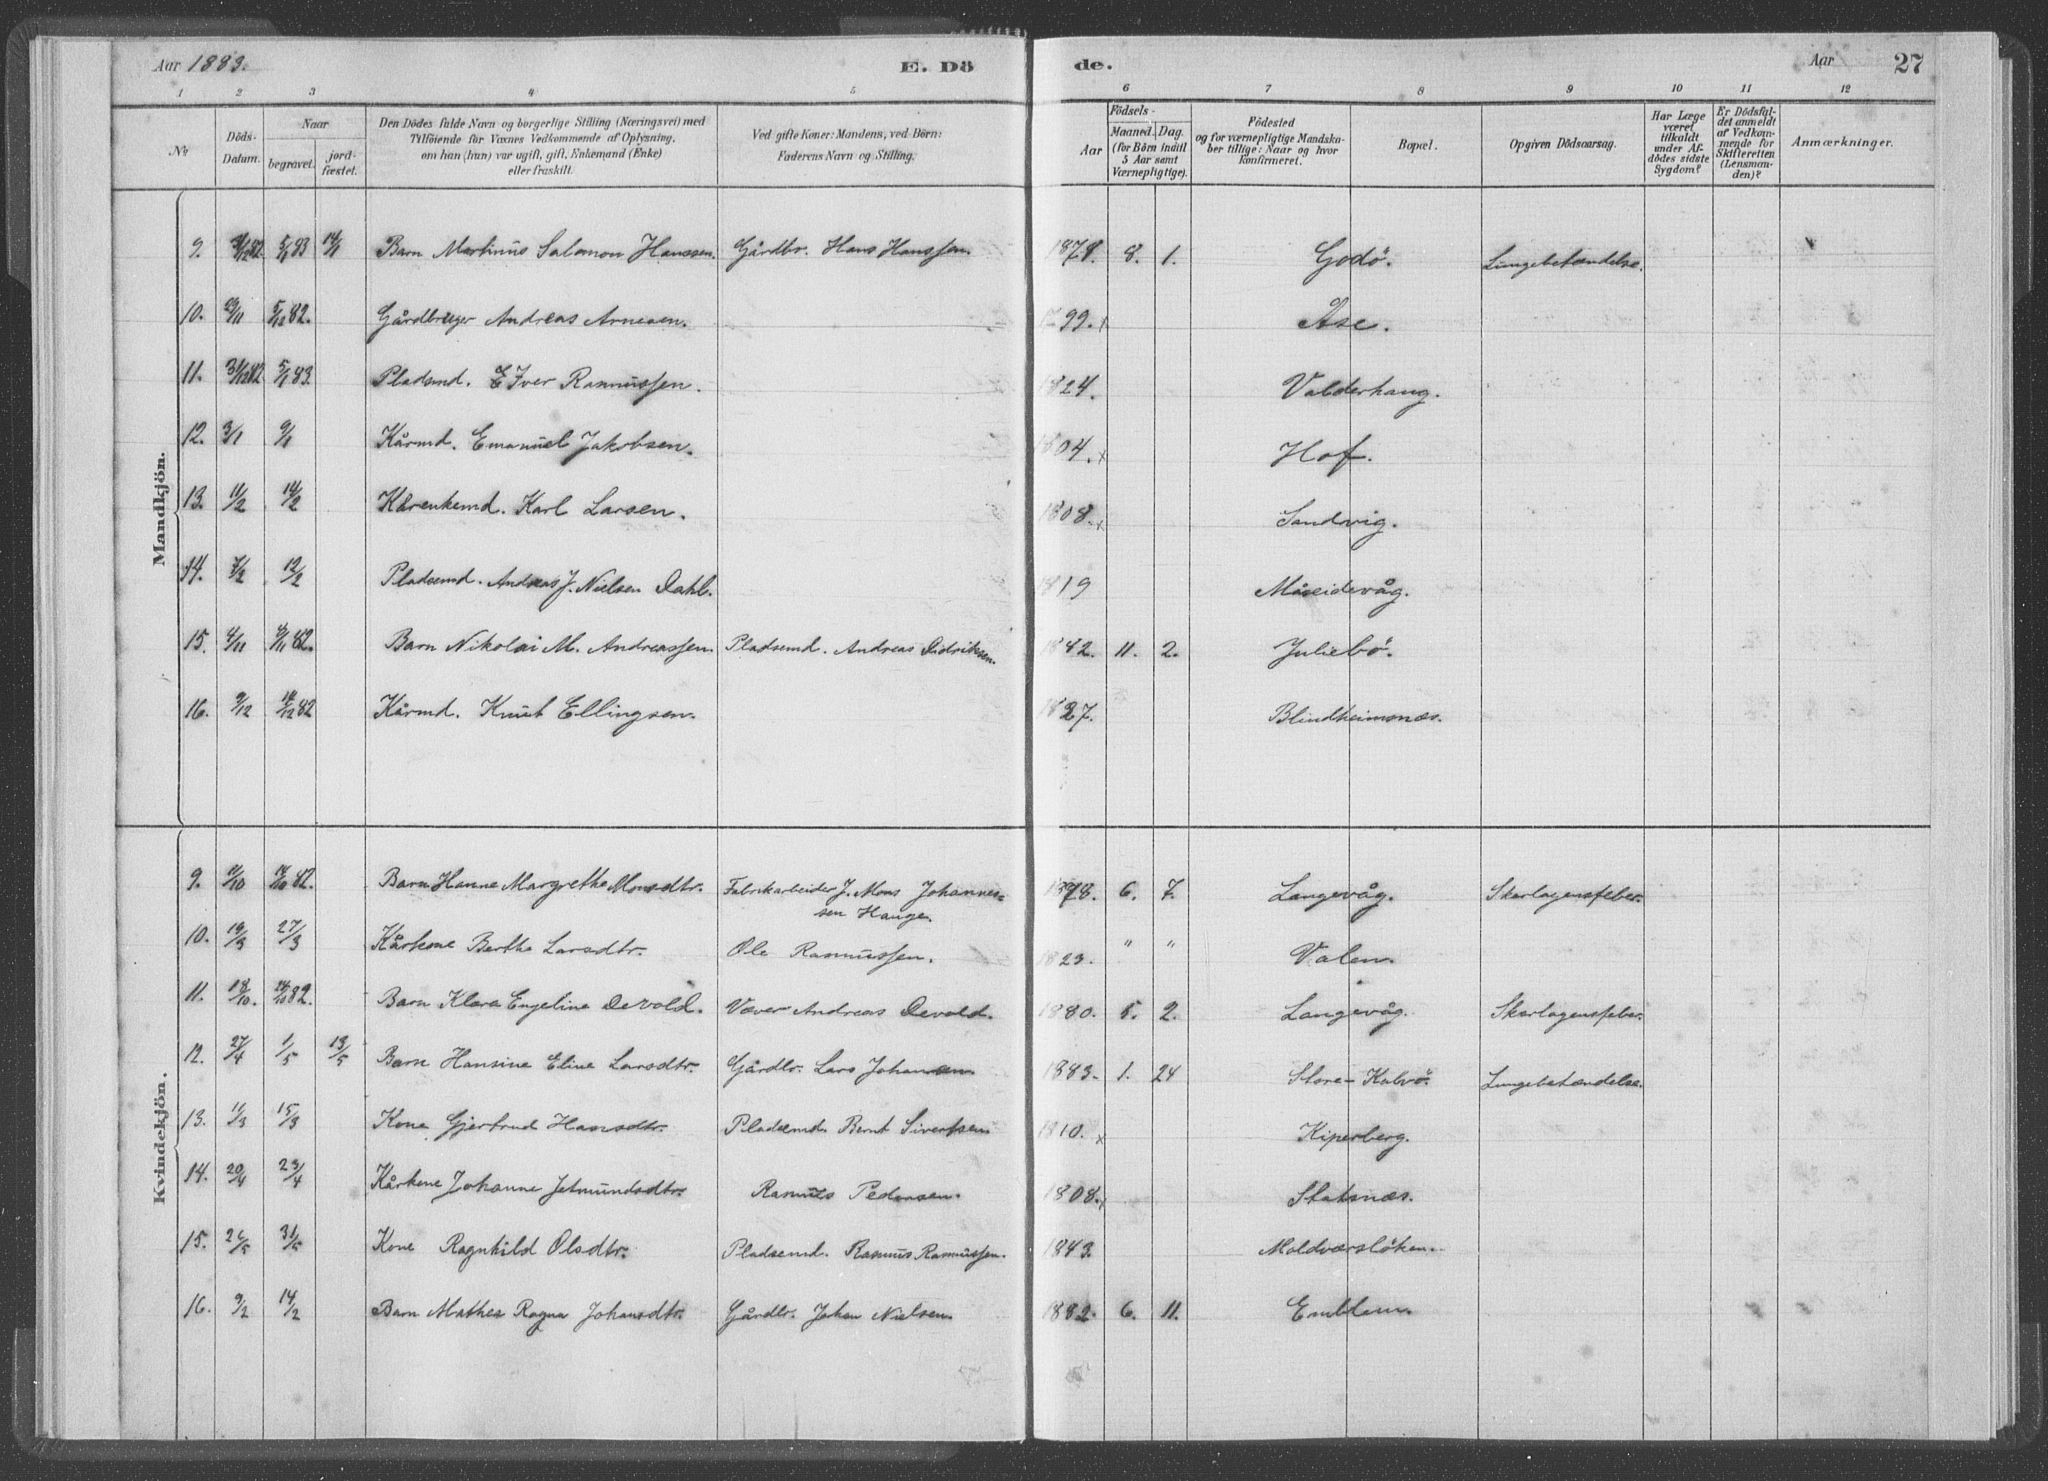 Aar 1883. E. Dö de. Aar 27
1 2 3 4 5 6 7 8 9 10 11 12
No
Döds-Datum.
Naar
begravet.
jord-fæstet.
Den Dödes fulde Navn og borgerlige Stilling (Næringsvei) med
Tilföiende for Voxnes Vedkommende af Oplysning,
om han (hun) var ugift, gift, Enkemand (Enke)
eller fraskilt.
Ved gifte Koner: Mandens, ved Börn:
Faderens Navn og Stilling.
Födsels-
Aar
Maaned. Dag.
(for Börn indtil
5 Aar samt
Værnepligtige).
Födested
og for værnepligtige Mandska-
ber tillige: Naar og hvor
konfirmeret.
Bopæl.
Opgiven Dödsaarsag.
Har Læge
været
tilkaldt
under Af-
dödes sidste
Sygdom?
Er Dödsfal-
det anmeldt
af Vedkom-
mende for
Skifteretten
(Lensman-
den)?
Anmærkninger.
Mandkjön.
9. 5/1 83 14/1 Barn Martinus Salomon Hanssen. Gårdbr. Hans Hanssen. 1878. 8. 1. Godö. Lungebetændelse.
10. 29/11 5/12 82. Gårdbruger Andreas Arnesen. 1799. x Åse.
11. 31/12 82 5/1 83. Pladsmd. Iver Rasmussen. 1824. Valderhaug.
12. 3/1 9/1 Kårmd. Emanuel Jakobsen. 1804. x Hof.
13. 11/2 14/2 Kårenkemd. Karl Larsen. 1808. x Sandvig.
14. 7/2 12/2 Pladsemd. Andreas J. Nielsen Dahl. 1819 Måseidevåg.
15. 4/11 82. Barn Nikolai M. Andreassen. Pladsemd. Andreas Didriksen. 11. 2. Juliebö.
16. 9/12 82 Kårmd. Knut Ellingsen. 1827. Blindheimsnæs.
Kvindekjön.
9. 11/10 82. Barn Hanne Margrethe Monsdtr. Fabrikarbeider J. Mons Johannes-
sen Hauge. 1878. 6. 7. Langevåg. Skarlagensfeber.
10. 19/3 27/3 Kårkone Berthe Larsdtr. Ole Rasmussen. 1823. " " Valen.
11. 18/10. 24/10 82. Barn Klara Engeline Devold. Væver Andreas Devold. 1880. 5. 2. Langevåg. Skarlagensfeber.
12. 27/4 1/5 13/5 Barn Hansine Eline Larsdtr. Gårdbr. Lars Johansen 1883. 1. 24 Store-Kalvö. Lungebetændelse.
13. 11/3 15/3 Kone Gjertrud Hansdtr. Pladsemd. Bernt Sivertsen 1810. x Kiperberg.
14. 20/4 23/4 Kårkone Johanne Jetmundsdtr. Rasmus Pedersen. 1808. Slotsnæs.
15. 26/5 31/5 Kone Ragnhild Olsdtr. Pladsemd. Rasmus Rasmussen. 1843. Moldværsløken.
16. 9/2 14/2 Barn Mathea Ragna Johansdtr. Gårdbr. Johan Nielsen. 1882. 6. 11. Emblem.